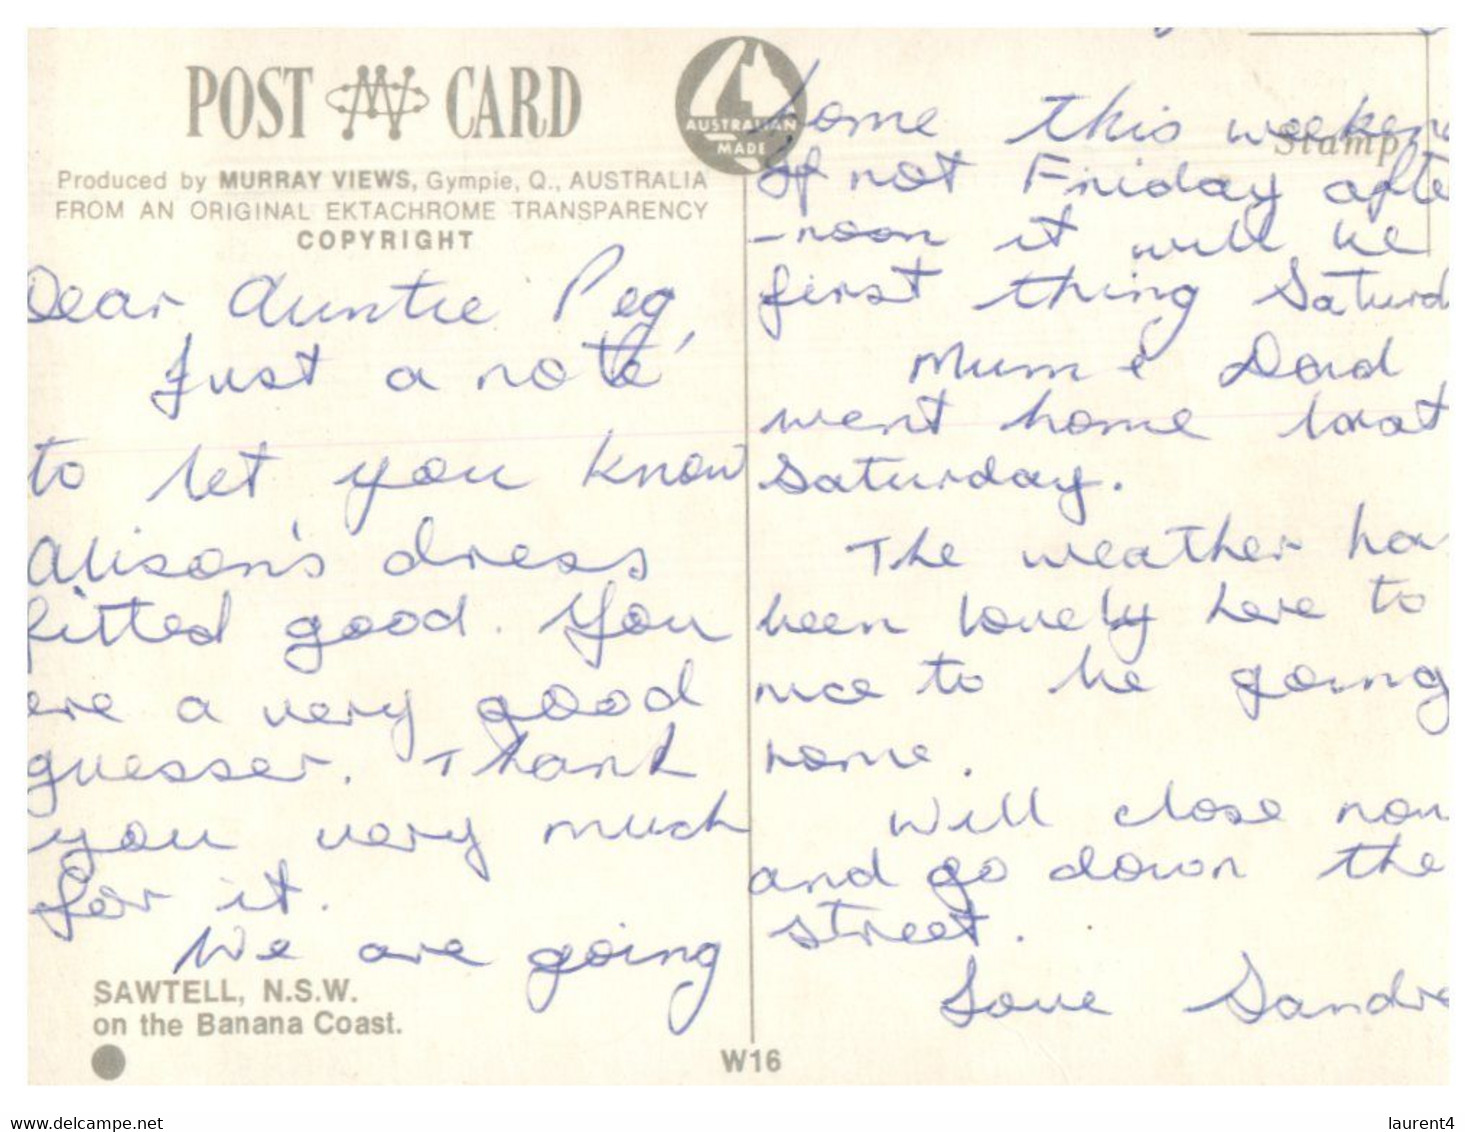 POST CARD
AUSTRALIAN
MADE
Stamp
Produced by MURRAY VIEWS, Gympie, Q., AUSTRALIA
FROM AN ORIGINAL EKTACHROME TRANSPARENCY
COPYRIGHT
Dear Auntie Peg,
Just a note
to let you know
Alison's dress
fitted good. You
are a very good
guesser. Thank
you very much
for it.
We are going
home this weeken
If not Friday afte
-noon it will be
first thing Saturd
Mum & Dad
went home last
Saturday.
The weather ha
been lovely here to
nice to be going
home.
Will close now
and go down the
street.
Love Sandra
SAWTELL, N.S.W.
on the Banana Coast.
W16
www.delcampe.net
laurent4